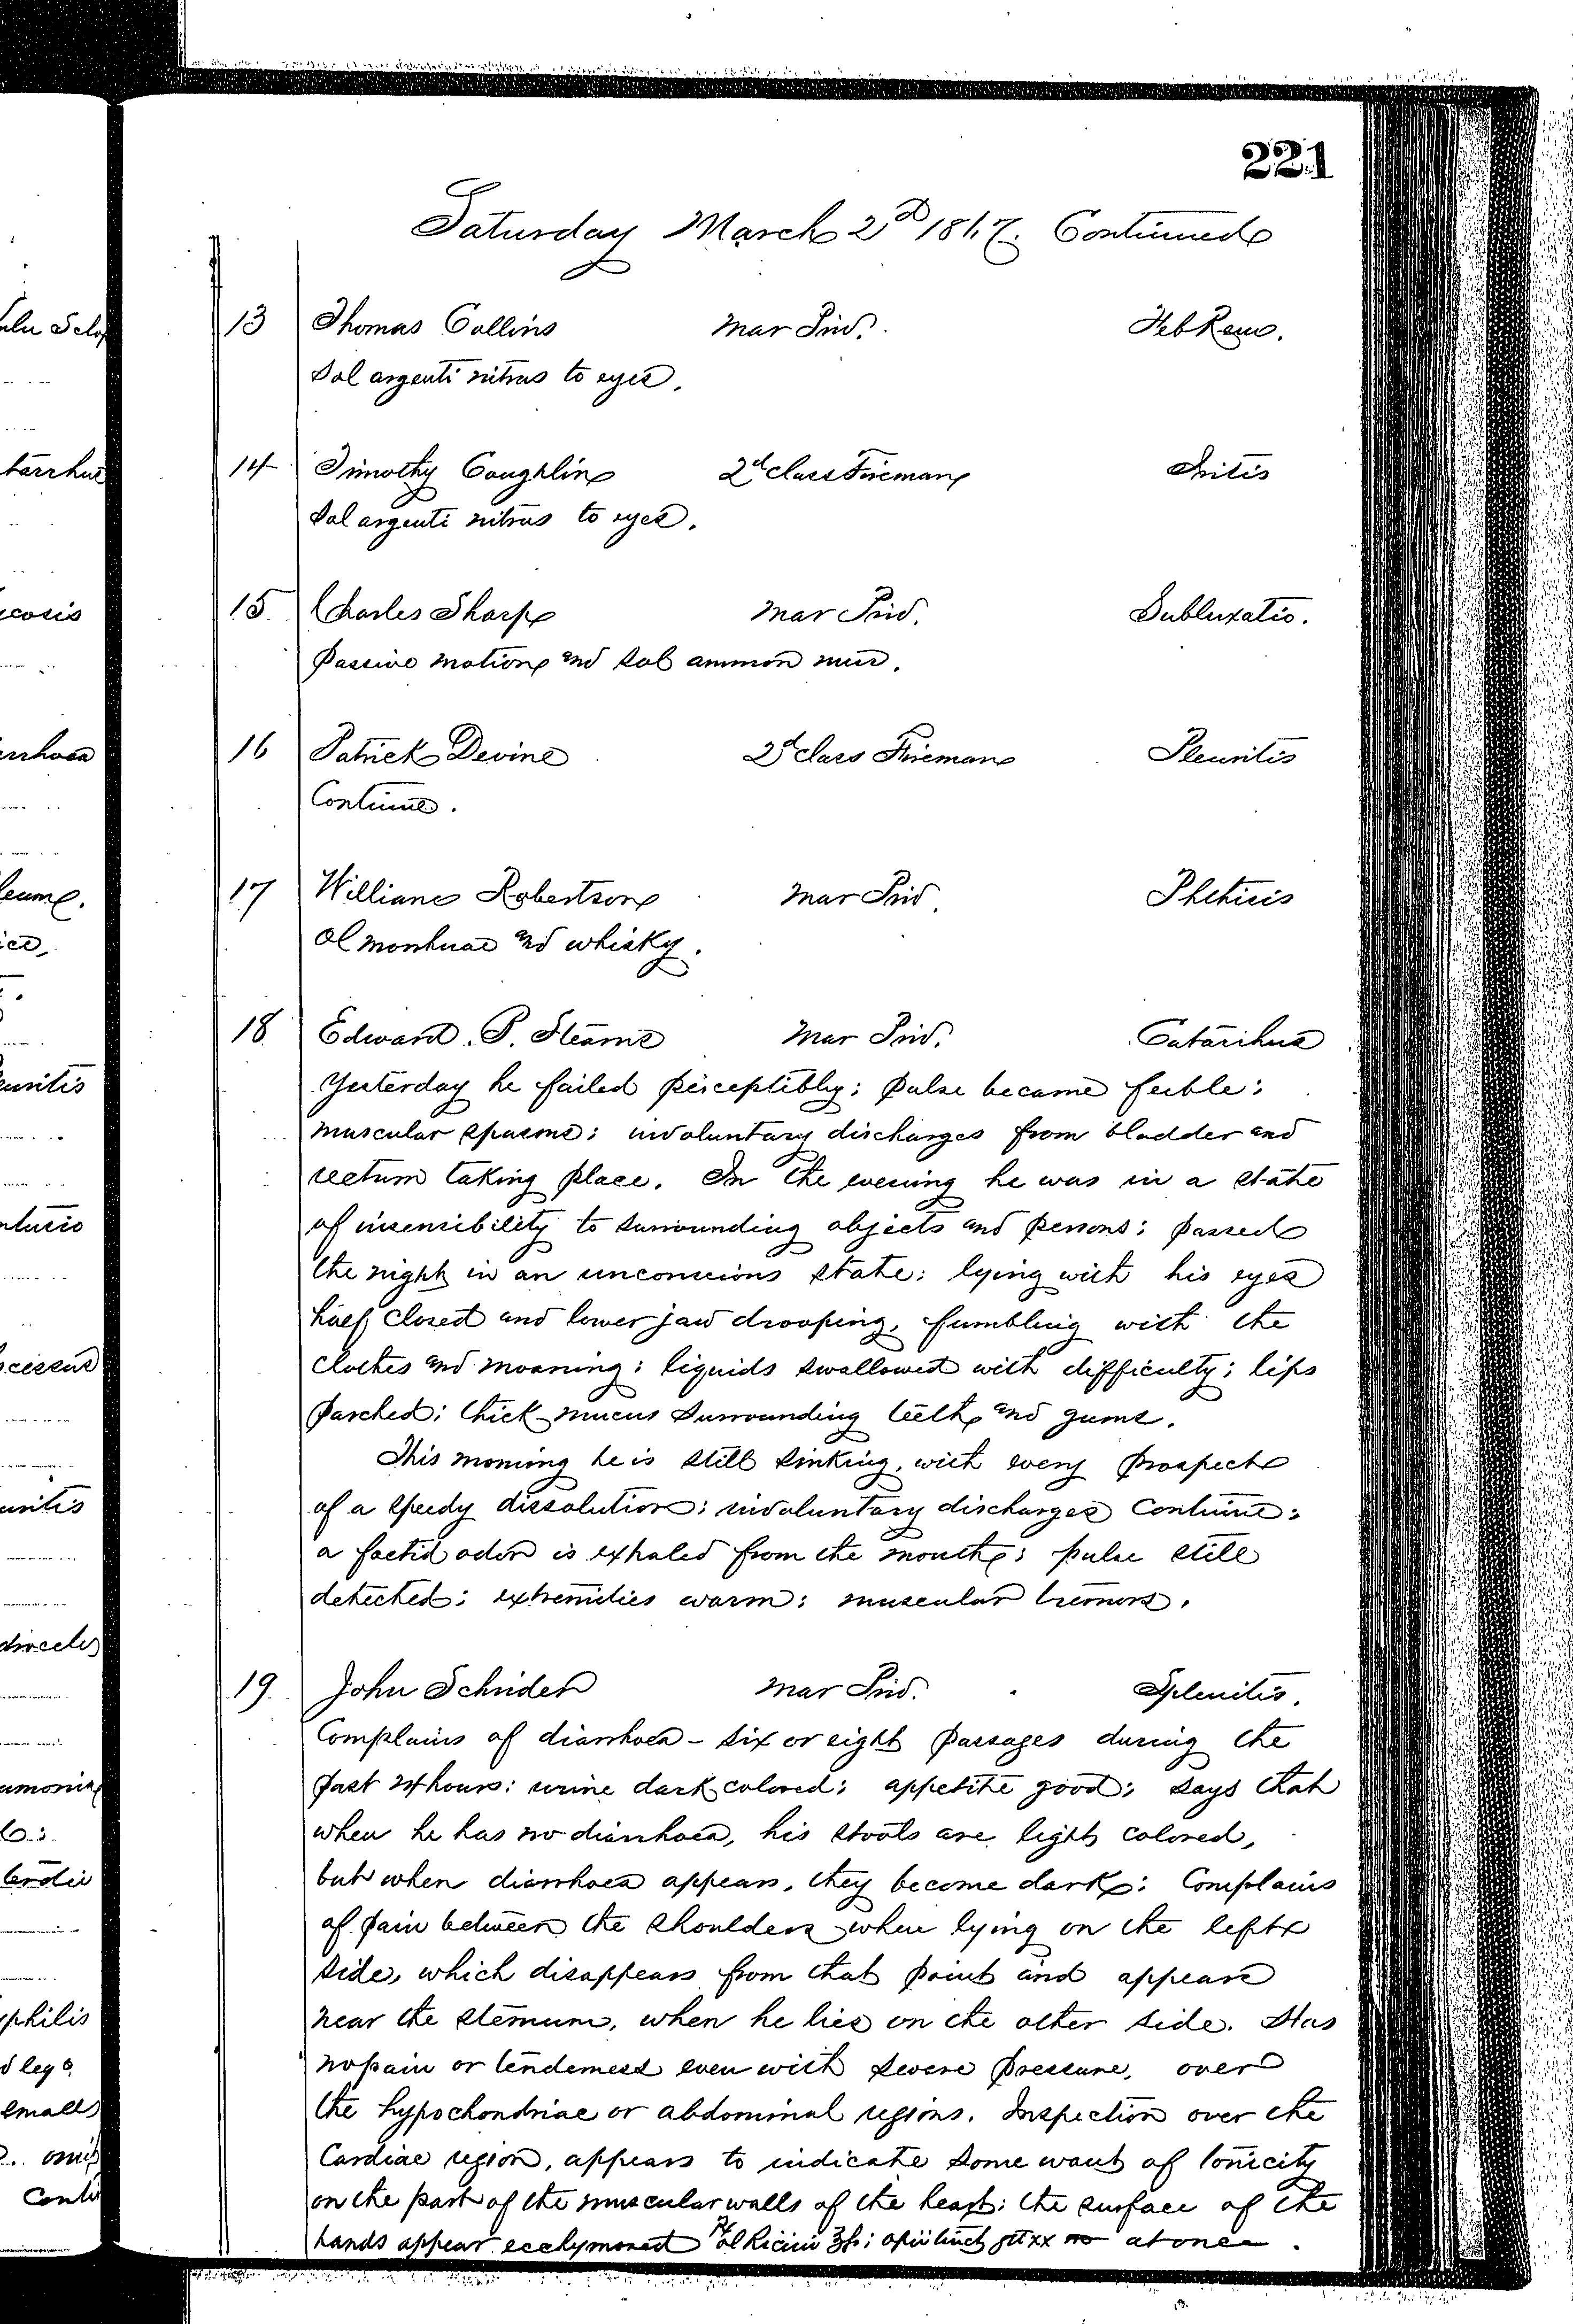 221
Saturday March 2d 1867. Continued
13 Thomas Collins Mar Pird. Feb Rem.
Sol argenti nitras to eyes.
14 Timothy Coughlin 2d Class Fireman Iritis
Sol argenti nitras to eyes.
15 Charles Sharp Mar Pird. Subluxatio.
Passive motion and Sol ammon mur.
16 Patrick Devine 2d Class Fireman Pleuritis
Continue.
17 William Robertson Mar Pird. Phthisis
Ol morrhuae and whisky.
18 Edward P. Stearns Mar Pird. Catarrhus
Yesterday he failed perceptibly; pulse became feeble;
muscular spasms; involuntary discharges from bladder and
rectum taking place. In the evening he was in a state
of insensibility to surrounding objects and persons; passed
the night in an unconscious state; lying with his eyes
half closed and lower jaw drooping, fumbling with the
clothes and moaning; liquids swallowed with difficulty; lips
parched; thick mucus surrounding teeth and gums.
This morning he is still sinking, with every prospect
of a speedy dissolution; involuntary discharges continue;
a foetid odor is exhaled from the mouth; pulse still
detected; extremities warm; muscular tremors.
19 John Schrider Mar Pird. Splenitis.
Complains of diarrhoea - six or eight passages during the
past 24 hours; urine dark colored; appetite good; says that
when he has no diarrhoea, his stools are light colored,
but when diarrhoea appears, they become dark; Complains
of pain between the shoulders when lying on the left
side, which disappears from that point and appears
near the sternum, when he lies on the other side. Has
no pain or tenderness even with severe pressure, over
the hypochondriac or abdominal regions. Inspection over the
Cardiac region, appears to indicate some want of tonicity
on the part of the muscular walls of the heart; the surface of the
hands appear ecchymosed Ol Ricini ℥ss; opii tinct gtt xx at once.